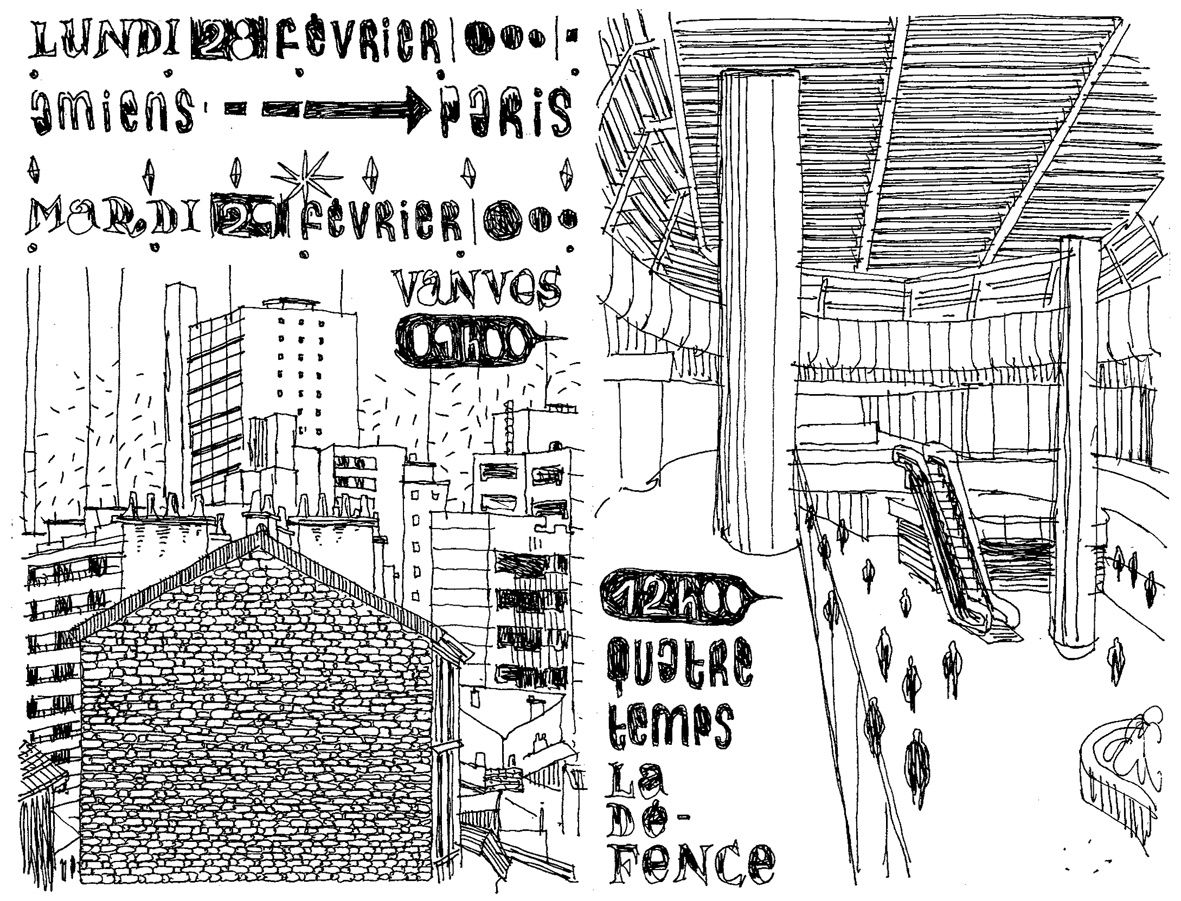 LUNDI 28 février
amiens paris
MaRDI 29 février
VaNVeS
09h00
12h00
quatre
temps
La
Dé-
FeNCe